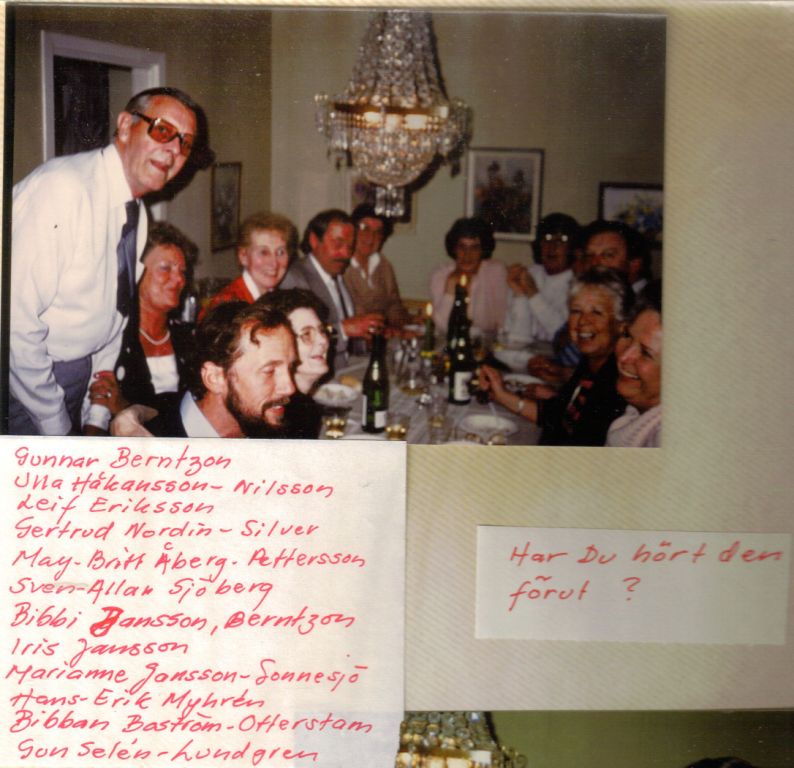 Gunnar Berntzon
Ulla Håkansson-Nilsson
Leif Eriksson
Gertrud Nordin-Silver
May-Britt Åberg-Pettersson
Sven-Allan Sjöberg
Bibbi Jansson, Berntzon
Iris Jansson
Marianne Jansson-Sonnesjö
Hans-Erik Myhrén
Bibban Boström-Otterstam
Gun Selén-Lundgren
Har Du hört den
förut ?